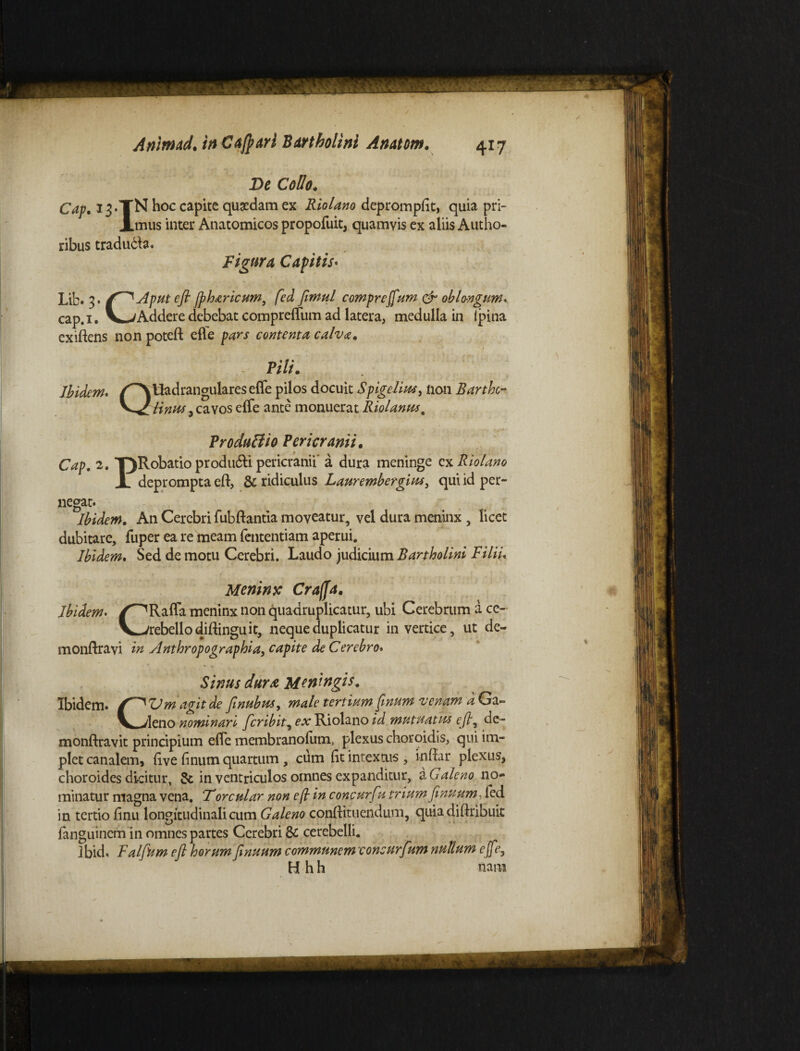 Animad. in Caſpari Bartholini Anatom. 417
De Collo.
Cap. 13. IN hoc capite quædam ex Riolano deprompſit, quia pri-
mus inter Anatomicos propoſuit, quamvis ex aliis Autho-
ribus traducta.
Figura Capitis.
Lib. 3. CAput eſt ſphæricum, ſed ſimul compreſſum & oblongum.
cap. 1. Addere debebat compreſſum ad latera, medulla in ſpina
exiſtens non poteſt eſſe pars contenta calvæ.
Pili.
Ibidem. QUadrangulares eſſe pilos docuit Spigelius, non Bartho-
linus, cavos eſſe antè monuerat Riolanus.
Productio Pericranii.
Cap. 2. PRobatio producti pericranii à dura meninge ex Riolano
deprompta eſt, & ridiculus Laurembergius, qui id per-
negat.
Ibidem. An Cerebri ſubſtantia moveatur, vel dura meninx, licet
dubitare, ſuper ea re meam ſententiam aperui.
Ibidem. Sed de motu Cerebri. Laudo judicium Bartholini Filii.
Meninx Craſſa.
Ibidem. CRaſſa meninx non quadruplicatur, ubi Cerebrum à ce-
rebello diſtinguit, neque duplicatur in vertice, ut de-
monſtravi in Anthropographia, capite de Cerebro.
Sinus duræ Meningis.
Ibidem. CUm agit de ſinubus, male tertium ſinum venam à Ga-
leno nominari ſcribit, ex Riolano id mutuatus eſt, de-
monſtravit principium eſſe membranoſum, plexus choroidis, qui im-
plet canalem, ſive ſinum quartum, cùm ſit intextus, inſtar plexus,
choroides dicitur, & in ventriculos omnes expanditur, à Galeno no-
minatur magna vena. Torcular non eſt in concurſu trium ſinuum, ſed
in tertio ſinu longitudinali cum Galeno conſtituendum, quia diſtribuit
ſanguinem in omnes partes Cerebri & cerebelli.
Ibid. Falſum eſt horum ſinuum communem concurſum nullum eſſe,
Hhh nam